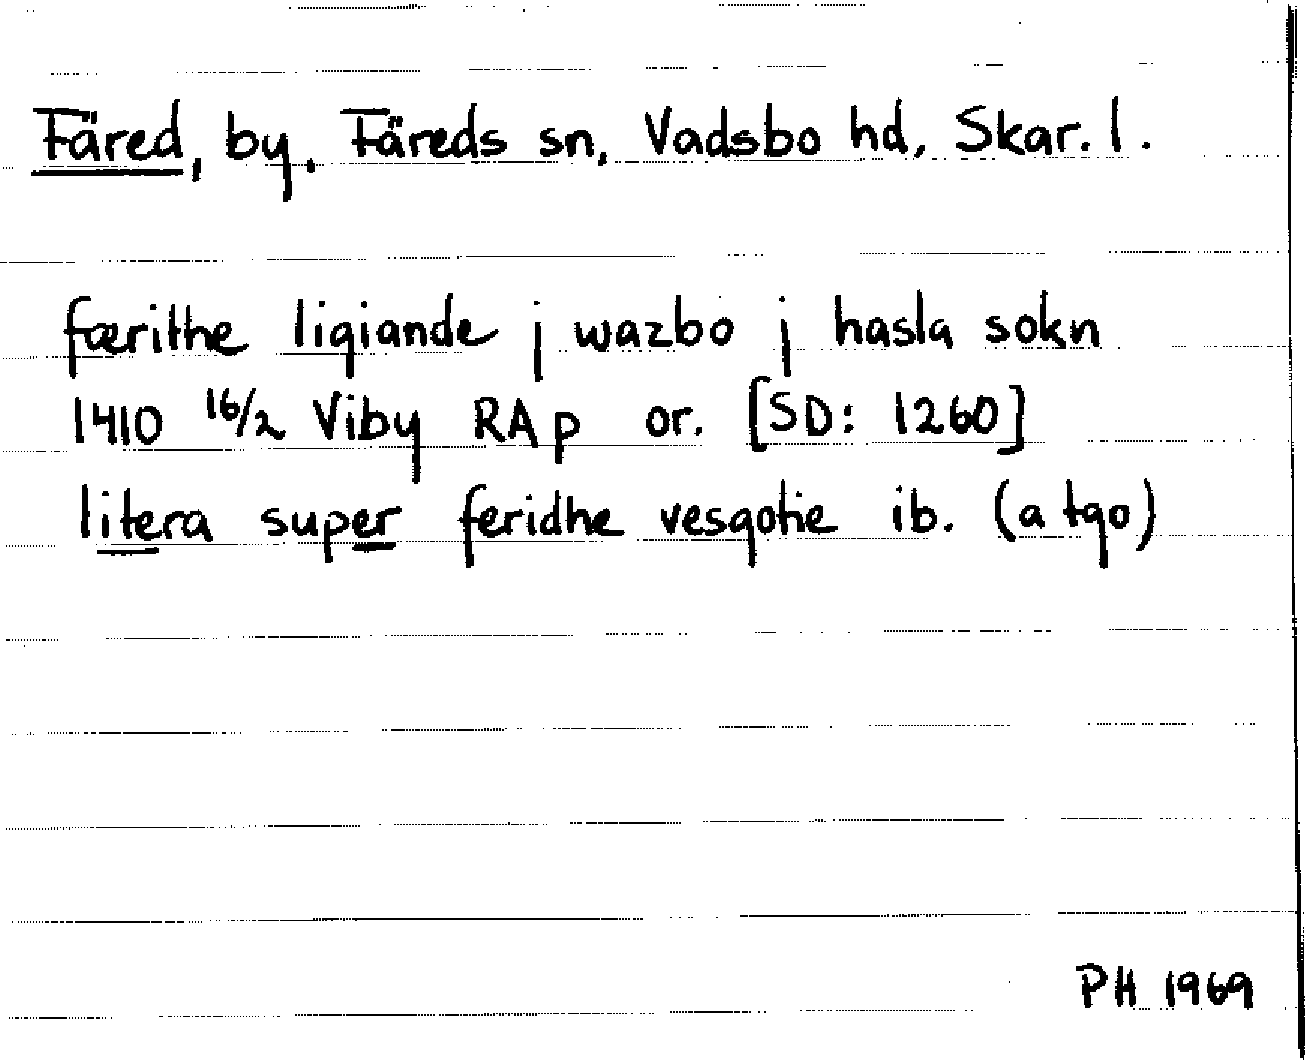 Färed, by. Färeds sn, Vadsbo hd, Skar. l.
færithe ligiande j wazbo j hasla sokn
1410 16/2 Viby RAp or. [SD: 1260]
litera super feridhe vesgotie ib. (a tgo)
PH 1969